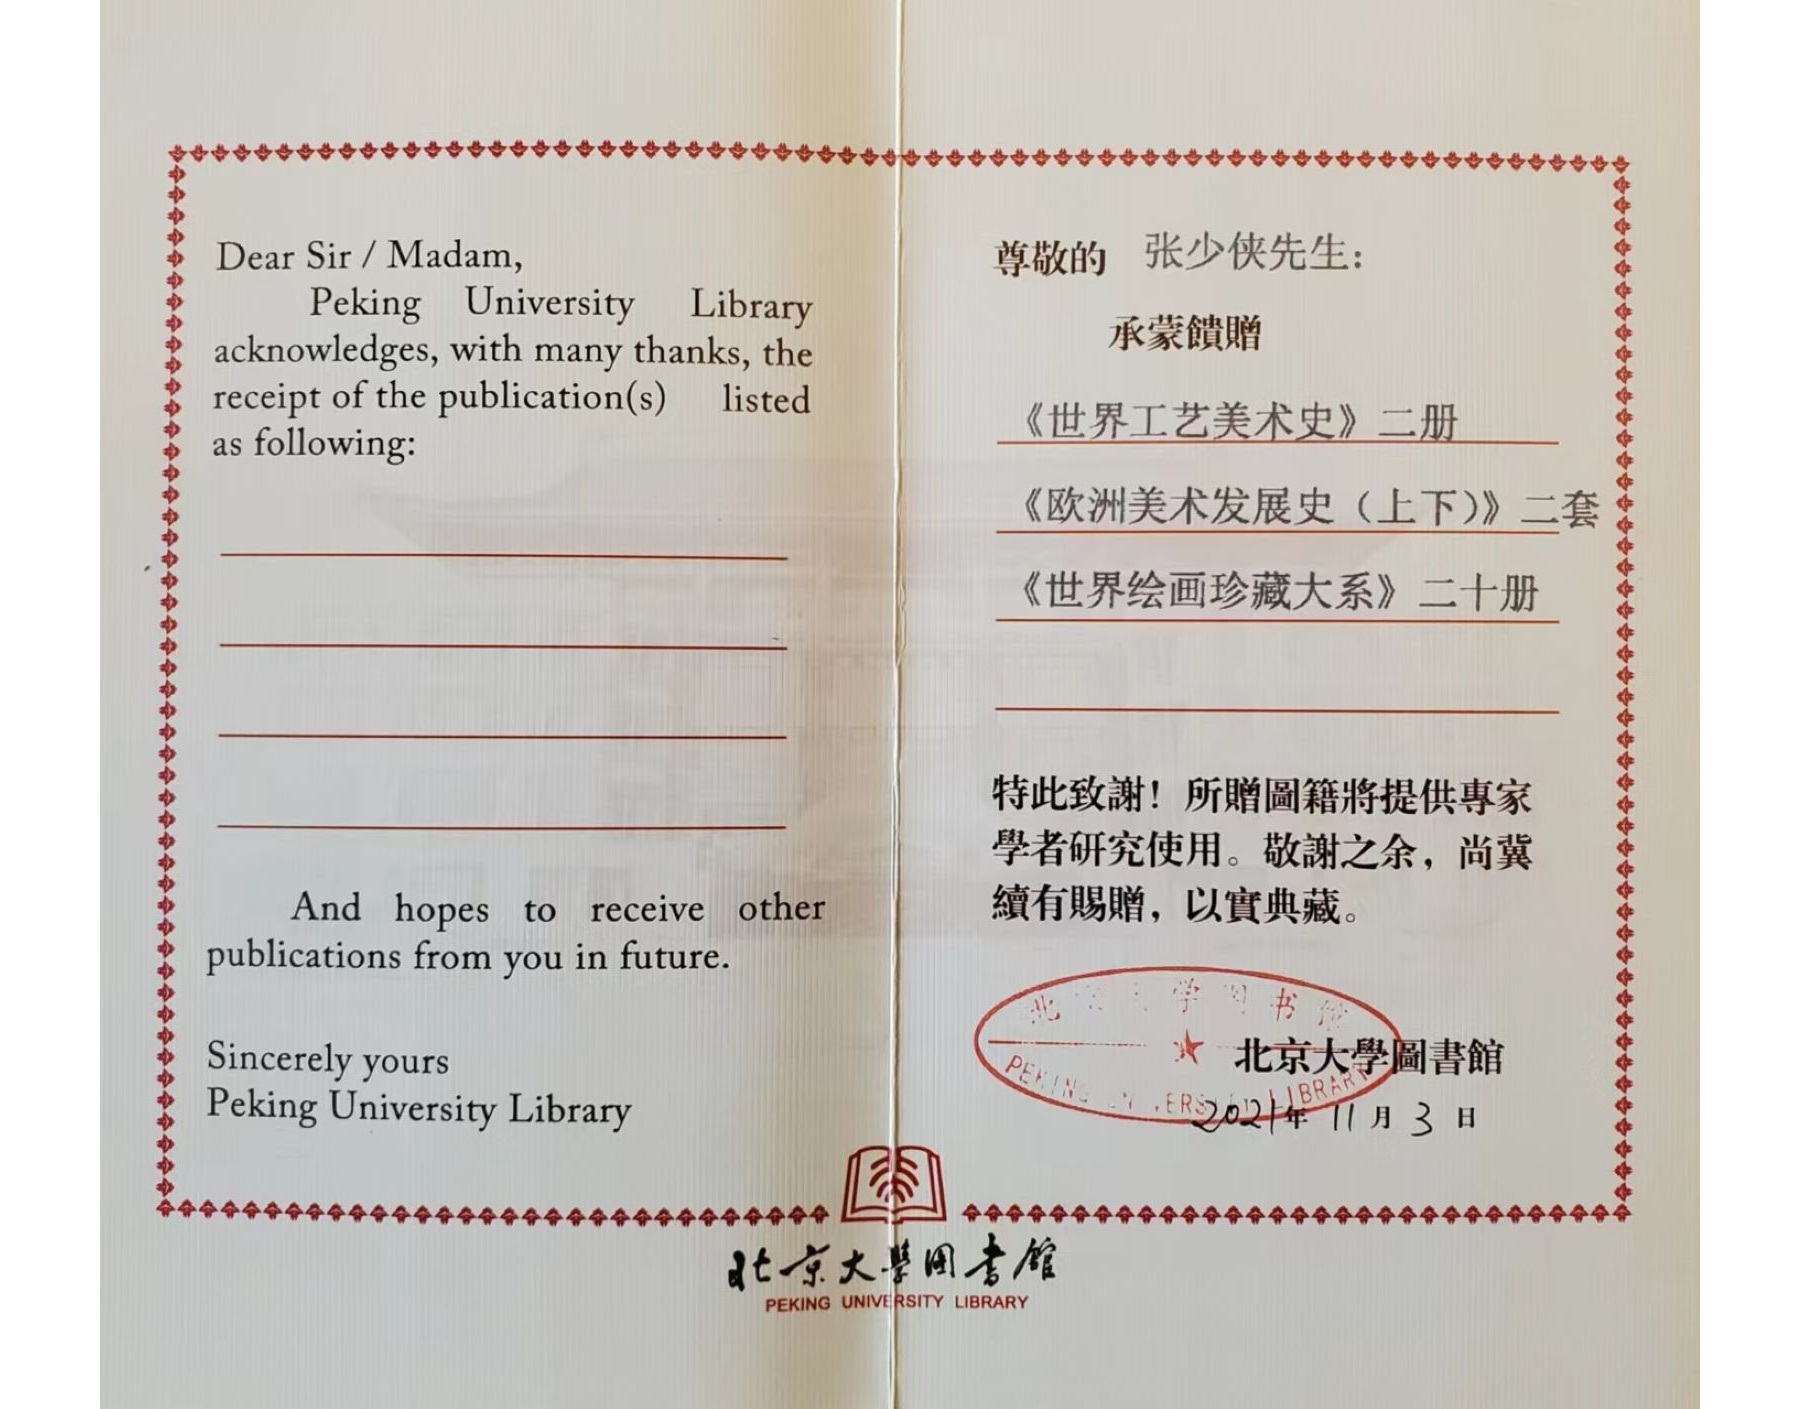 Dear Sir / Madam,
Peking University Library
acknowledges, with many thanks, the
receipt of the publication(s) listed
as following:
And hopes to receive other
publications from you in future.
Sincerely yours
Peking University Library
尊敬的 张少侠先生:
承蒙饋贈
《世界工艺美术史》二册
《欧洲美术发展史(上下)》二套
《世界绘画珍藏大系》二十册
特此致謝！所贈圖籍將提供專家
學者研究使用。敬謝之余，尚冀
續有賜贈，以實典藏。
北 学 书
北京大學圖書館
PEKING LIBRARY
2021年 11 月 3 日
北京大學图書館
PEKING UNIVERSITY LIBRARY